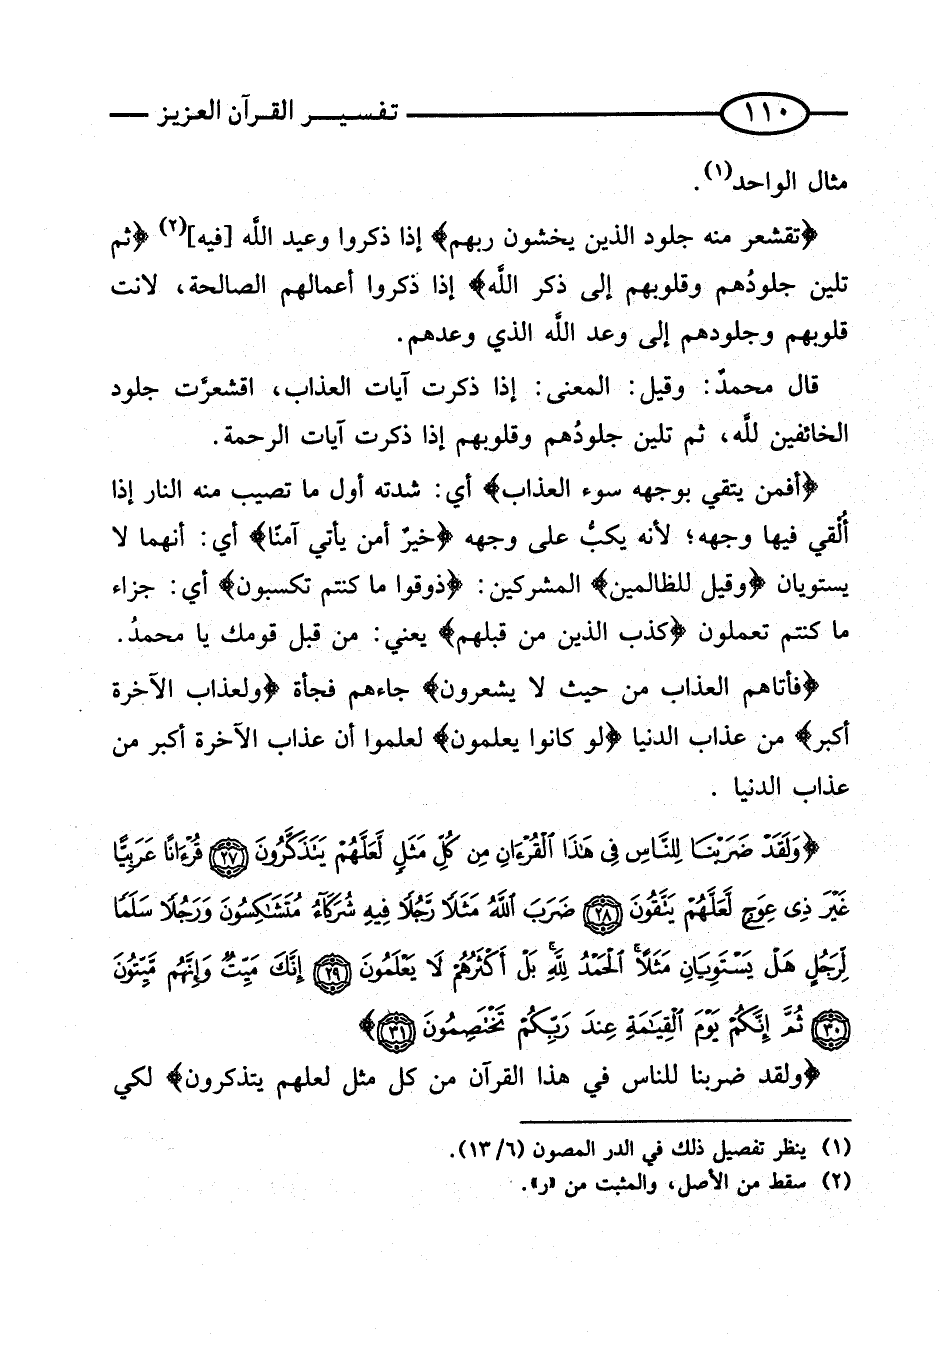 ١١٠ تفسير القرآن العزيز
مثال الواحد(١).
﴿تقشعر منه جلود الذين يخشون ربهم﴾ إذا ذكروا وعيد اللَّه [فيه](٢) ﴿ثم
تلين جلودُهم وقلوبهم إلى ذكر اللَّه﴾ إذا ذكروا أعمالهم الصالحة، لانت
قلوبهم وجلودهم إلى وعد اللَّه الذي وعدهم.
قال محمدٌ: وقيل: المعنى: إذا ذكرت آيات العذاب، اقشعرَّت جلود
الخائفين للَّه، ثم تلين جلودُهم وقلوبهم إذا ذكرت آيات الرحمة.
﴿أفمن يتقي بوجهه سوء العذاب﴾ أي: شدته أول ما تصيب منه النار إذا
أُلْقي فيها وجهه؛ لأنه يكبُّ على وجهه ﴿خيرٌ أمن يأتي آمنًا﴾ أي: أنهما لا
يستويان ﴿وقيل للظالمين﴾ المشركين: ﴿ذوقوا ما كنتم تكسبون﴾ أي: جزاء
ما كنتم تعملون ﴿كذب الذين من قبلهم﴾ يعني: من قبل قومك يا محمدُ.
﴿فأتاهم العذاب من حيث لا يشعرون﴾ جاءهم فجأة ﴿ولعذاب الآخرة
أكبر﴾ من عذاب الدنيا ﴿لو كانوا يعلمون﴾ لعلموا أن عذاب الآخرة أكبر من
عذاب الدنيا .
﴿وَلَقَدْ ضَرَبْنَا لِلنَّاسِ فِى هَٰذَا ٱلْقُرْءَانِ مِن كُلِّ مَثَلٍ لَّعَلَّهُمْ يَتَذَكَّرُونَ ٢٧ قُرْءَانًا عَرَبِيًّا
غَيْرَ ذِى عِوَجٍ لَّعَلَّهُمْ يَتَّقُونَ ٢٨ ضَرَبَ ٱللَّهُ مَثَلًا رَّجُلًا فِيهِ شُرَكَآءُ مُتَشَٰكِسُونَ وَرَجُلًا سَلَمًا
لِّرَجُلٍ هَلْ يَسْتَوِيَانِ مَثَلًا ۚ ٱلْحَمْدُ لِلَّهِ ۚ بَلْ أَكْثَرُهُمْ لَا يَعْلَمُونَ ٢٩ إِنَّكَ مَيِّتٌ وَإِنَّهُم مَّيِّتُونَ
٣٠ ثُمَّ إِنَّكُمْ يَوْمَ ٱلْقِيَٰمَةِ عِندَ رَبِّكُمْ تَخْتَصِمُونَ ٣١﴾
﴿ولقد ضربنا للناس في هذا القرآن من كل مثل لعلهم يتذكرون﴾ لكي
(١) ينظر تفصيل ذلك في الدر المصون (٦/١٣).
(٢) سقط من الأصل، والمثبت من «ر».